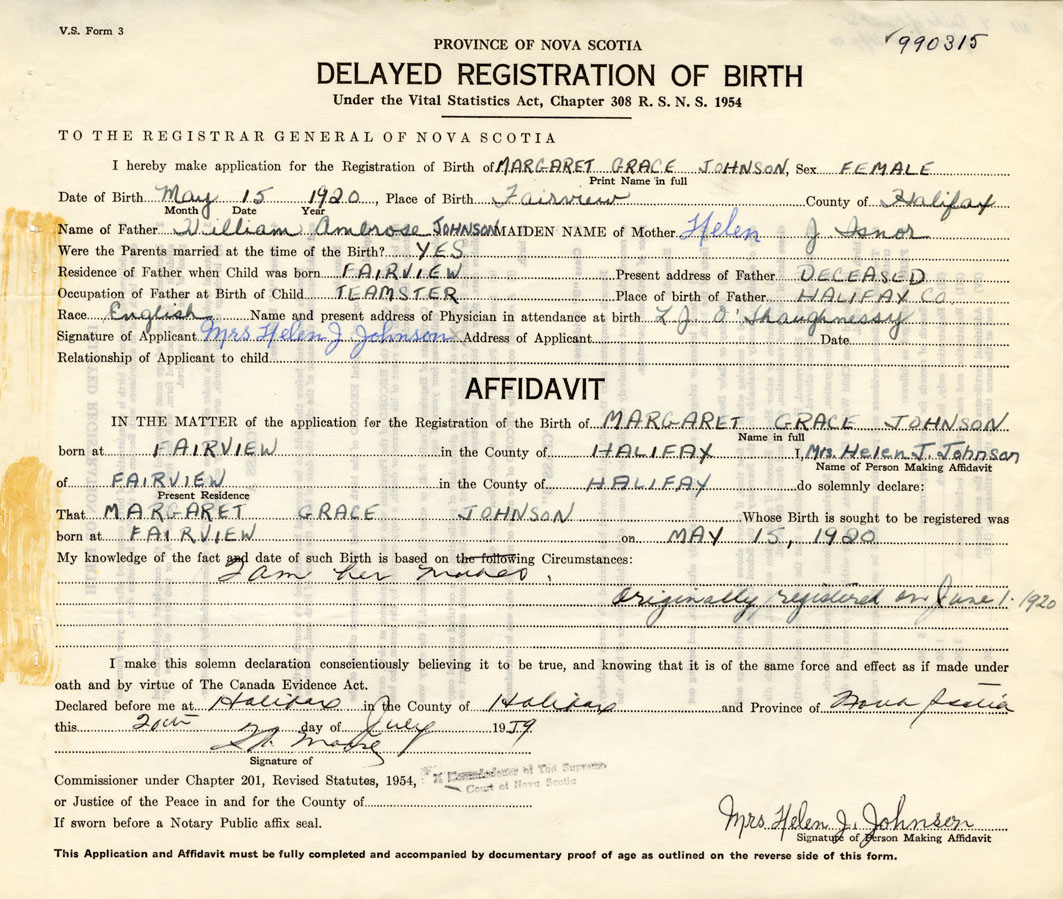 V.S. Form 3
990315
PROVINCE OF NOVA SCOTIA
DELAYED REGISTRATION OF BIRTH
Under the Vital Statistics Act, Chapter 308 R. S. N. S. 1954
TO THE REGISTRAR GENERAL OF NOVA SCOTIA
I hereby make application for the Registration of Birth of MARGARET GRACE JOHNSON, Sex FEMALE
Print Name in full
Date of Birth May 15 1920, Place of Birth Fairview County of Halifax
Month Date Year
Name of Father William Ambrose JOHNSON MAIDEN NAME of Mother Helen J Isnor
Were the Parents married at the time of the Birth? YES
Residence of Father when Child was born FAIRVIEW Present address of Father DECEASED
Occupation of Father at Birth of Child TEAMSTER Place of birth of Father HALIFAX CO.
Race English Name and present address of Physician in attendance at birth L J O'Shaughnessy
Signature of Applicant Mrs Helen J Johnson Address of Applicant Date
Relationship of Applicant to child
AFFIDAVIT
IN THE MATTER of the application for the Registration of the Birth of MARGARET GRACE JOHNSON
Name in full
born at FAIRVIEW in the County of HALIFAX I, Mrs. Helen J. Johnson
Name of Person Making Affidavit
of FAIRVIEW in the County of HALIFAX do solemnly declare:
Present Residence
That MARGARET GRACE JOHNSON Whose Birth is sought to be registered was
born at FAIRVIEW on MAY 15, 1920
My knowledge of the fact and date of such Birth is based on the following Circumstances:
I am her mother.
Originally registered on June 1. 1920
I make this solemn declaration conscientiously believing it to be true, and knowing that it is of the same force and effect as if made under
oath and by virtue of The Canada Evidence Act.
Declared before me at Halifax in the County of Halifax and Province of Nova Scotia
this 20th day of July 1959
Moore
Signature of
Commissioner under Chapter 201, Revised Statutes, 1954, A Commissioner of The Supreme
Court of Nova Scotia
or Justice of the Peace in and for the County of
If sworn before a Notary Public affix seal.
Mrs Helen J. Johnson
Signature of Person Making Affidavit
This Application and Affidavit must be fully completed and accompanied by documentary proof of age as outlined on the reverse side of this form.